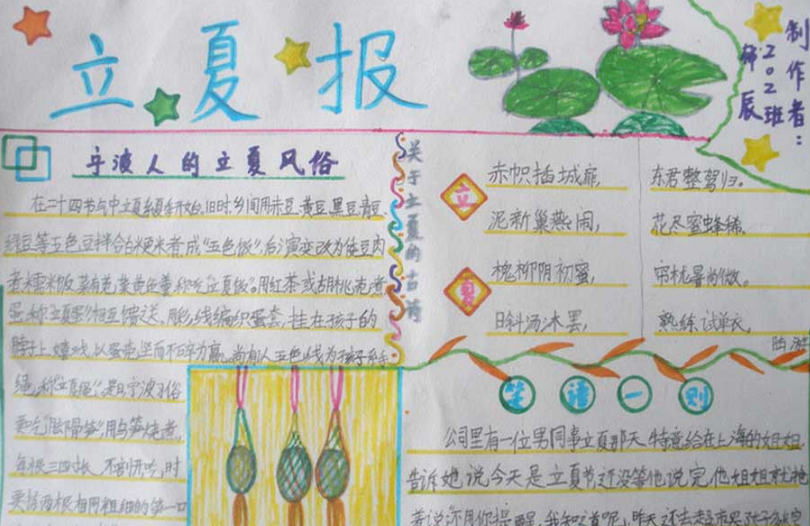 立夏报
制作者：
202班
辰
宁波人的立夏风俗
在二十四节气中立夏是夏季开始，旧时，乡间用赤豆、黄豆、黑豆、青豆、
绿豆等五色豆拌合白粳米煮成"五色饭"，后演变改为倭豆肉
煮糯米饭，菜有苋菜黄鱼羹，称吃"立夏饭"。用红茶或胡桃壳煮
蛋，称"立夏蛋"，相互馈送。用彩线编织蛋套，挂在孩子的
脖子上，嬉戏，以蛋壳坚而不碎为赢。尚有人五色线为孩子系手
绳，称"立夏绳"。是日，宁波习俗
要吃"脚骨笋"，用乌笋烧煮，
每根三四寸长，不剖开，吃时
要拣两根相同粗细的笋一口
关于立夏的古诗
立夏
赤帜插城扉，
东君整驾归。
泥新巢燕闹，
花尽蜜蜂稀。
槐柳阴初蜜，
帘栊暑尚微。
日斜汤沐罢，
熟练试单衣。
陆游
笑话一则
公司里有一位男同事立夏那天，特意给在上海的姐姐
告诉她说今天是立夏节，还没等他说完，他姐姐就抢
着说：还用你提醒，我知道呢，昨天还去超市